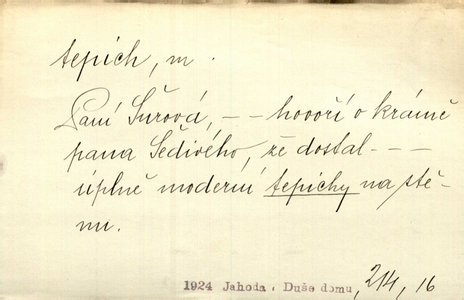 tepich, m.
Paní Šírová, - - hovoří o krámě
pana Šedivého, že dostal - - -
úplně moderní tepichy na stě-
nu.
1924 Jahoda, Duše domu, 214, 16